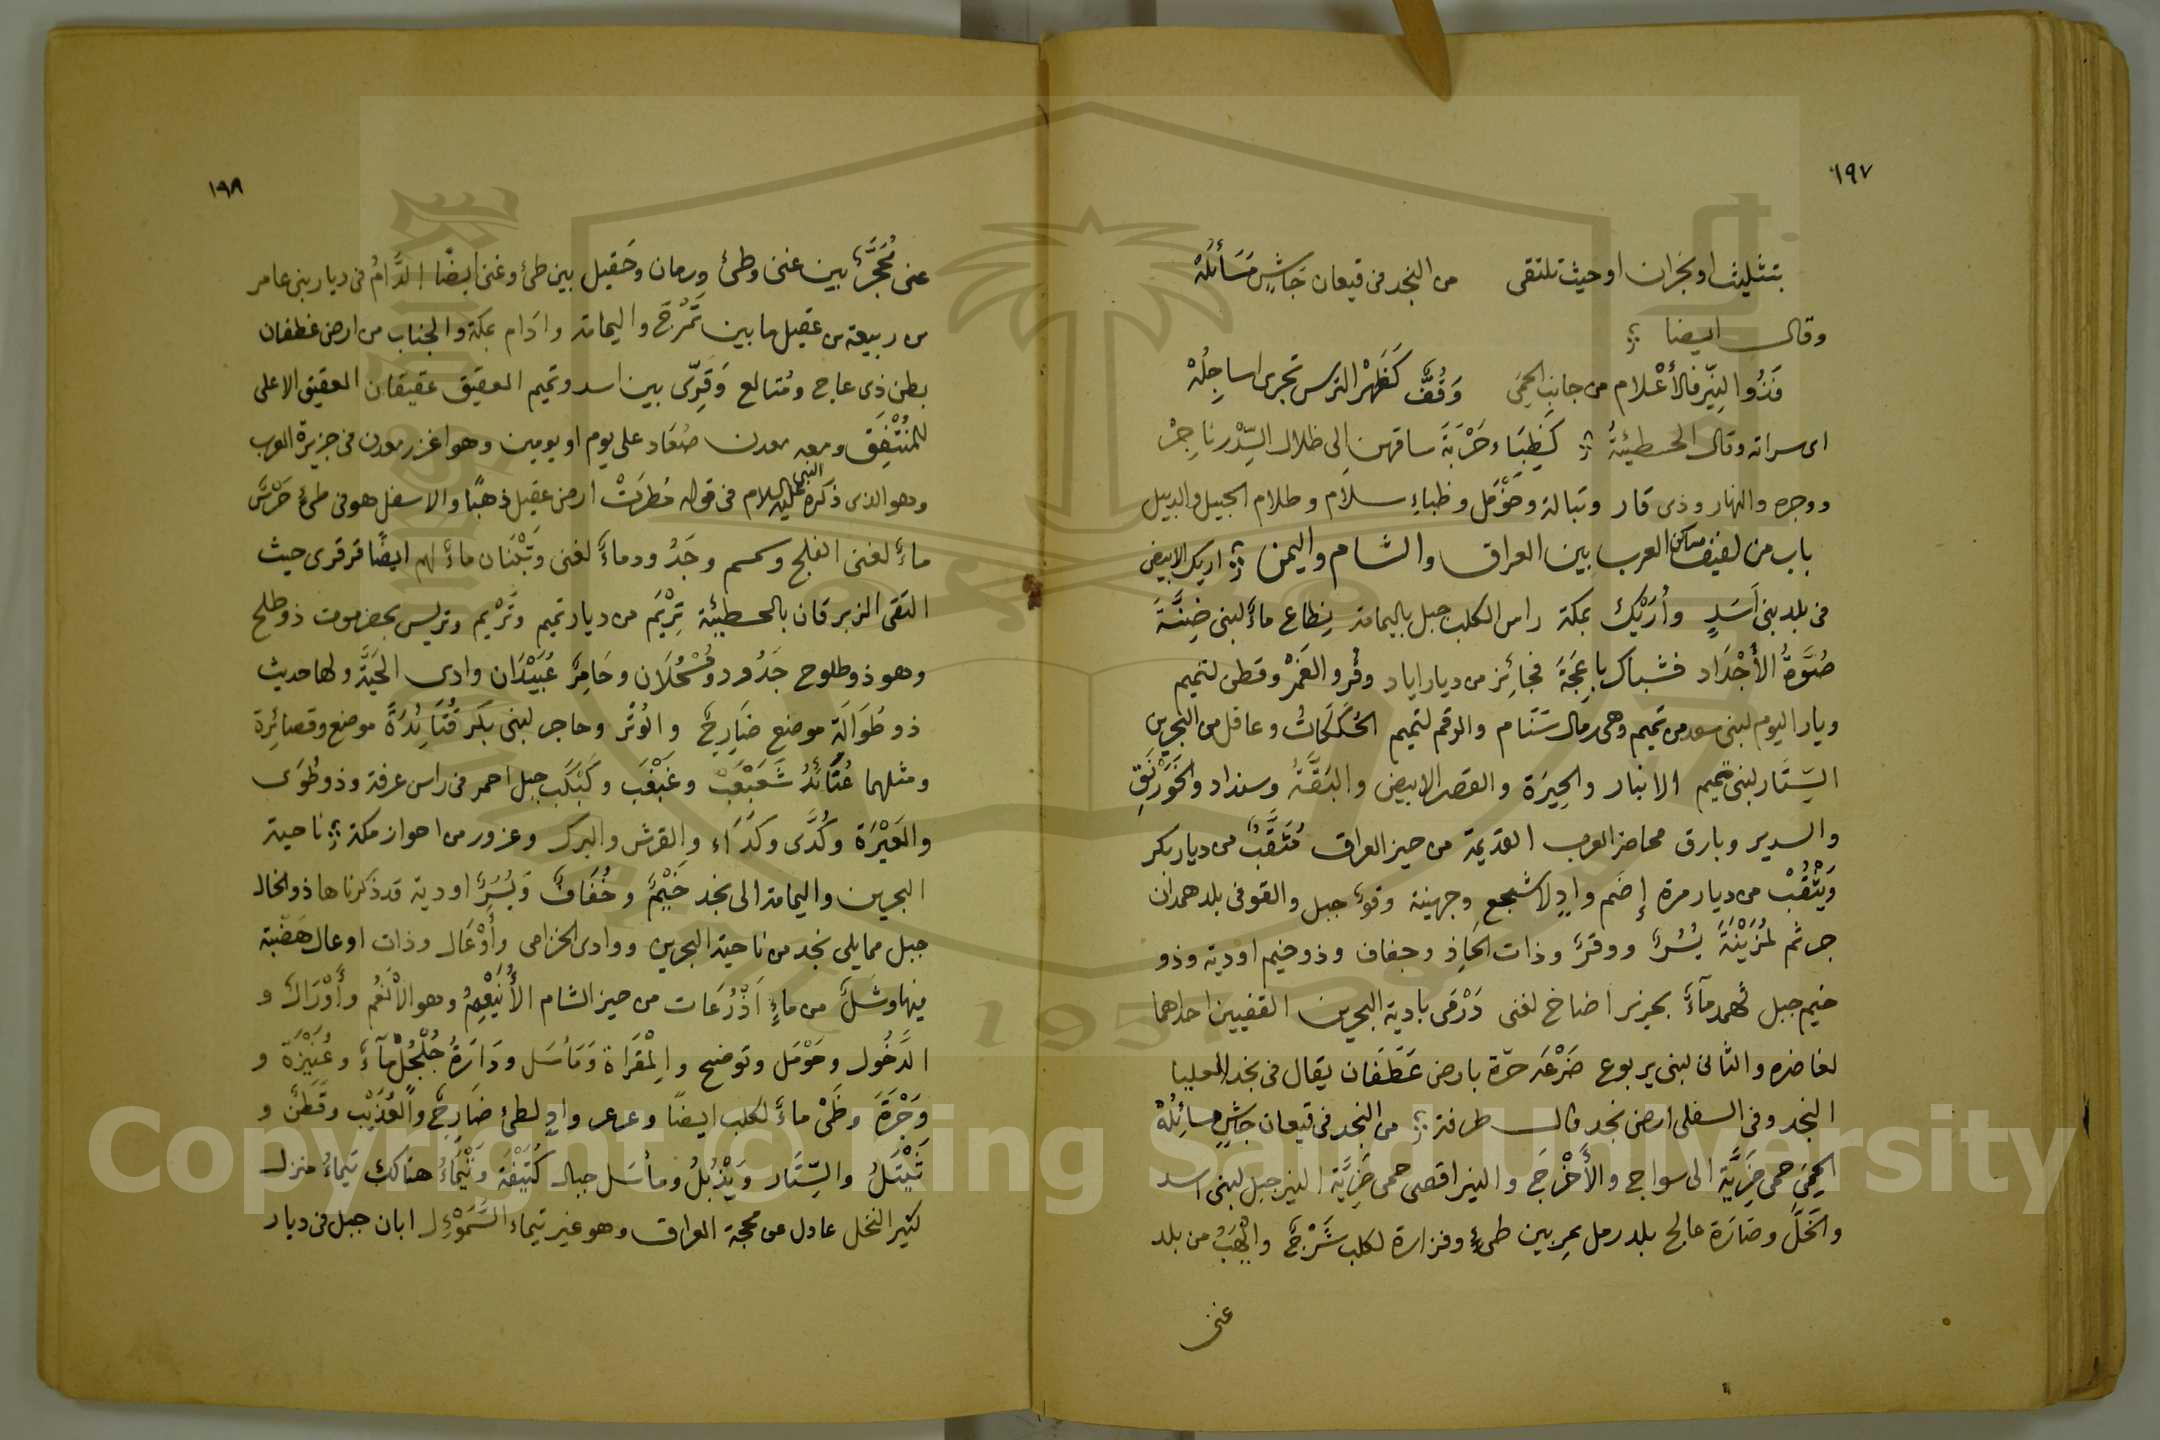 ١٩٧
بتثليث او نجران او حيث تلتقى من النجد فى قيعان جَاشٍ مَسَائلُهْ
وقال ايضا
فَذُو النِيّر فالأعْلام من جانب الحِمَى وَقُفٌّ كَظَهْر الترس تجرى اساجِلُهْ
اى سرابه وقال الحطيئةُ كَظِبَاء حَرْبَةَ ساقهن الى ظلال السِّدْر ناجِرْ
ووجره والنهار وذى قار وتبالة وحَوْمَل وظباء سلام وظلام الجبيل والدبيل
باب من لفيف مساكن العرب بين العراق والشام واليمن اريك الابيض
فى بلد بنى اَسَدٍ وأُرَيْك بمكة راس الكلب جبل باليمامة نِطاع ماءٌ لبنى ضِنَّةَ
صُوَّةُ الأجْدَاد فشباك باعِجَةَ فجائِز من ديار اياد وقُر والغَمْر وقطن لتميم
وبار اليوم لبنى سعد من تميم وهى رمال سَنَام والرقم لتميم الحُكَكَاتُ وعاقل من البحرين
السِّتَار لبنى تميم الانبار والحِيرَة والقصر الابيض والبَقَّةُ وسنداد والخَوَرْنَقِ
والسدير وبارق محاضر العرب القديمة من حيز العراق مُثَقَّبٌ من ديار بكر
وَيَثْقُبْ من ديار مرة إِضَم وادٍ لاشجع وجهينة وقوٌ جبل والقو فى بلد همدان
جرثم لمُزَيْنَةَ يُسُرٌ ووقرٌ وذات الحَاذِ وجفاف وذو خيم اودية وذو
خيم جبل ثهمد مآءٌ بحزيز اضاخ لغنى دَرْمَى بادية البحرين القضيين احداهما
لغاضره والثانى لبنى يربوع ضَرْغد حرّة بارض غَطَفَان يقال فى نجد العليا
النجد وفى السفلى ارض نجد قال طرفة من النجد فى قيعان جَاشٍ مسائِلُهْ
الحِمَى حمى ضَرِيَّةَ الى سواج والأَخْرَجَ والنير اقصى حمى ضَرِيَّةَ النير جبل لبنى اسد
والخَلّ وصَارَة عالج بلد رمل بمر بين طىءٍ وفزارة لكلب شَرْجٌ وايْهَبُ من بلد
غنى
١٩٨
غنى مُحَجَّرٌ بين غنى وطئ ورمان وحَقيل بين طئ وغنى ايضًا الدَّامُ فى ديار بنى عامر
من ربيعة من عقيل ما بين تَمُرَحَ واليمامة وادَام بمكة والجناب من ارض غطفان
بطن ذى عاج ومُتالع وَقِرّى بين اسد وتميم العقيق عقيقان العقيق الاعلى
للمُنْتَفِق ومعه معدن صُعَاد على يوم او يومين وهو اغزر معدن فى جزيرة العرب
وهو الذى ذكره النبى عليه السلام فى قوله مُطِرَتْ ارض عقيل ذهبًا والاسفل هو فى طئ حَرْسٌ
ماءٌ لغنى الفلج وسمسم وجَدُود ماءٌ لغنى وَتَبْنَان ماءٌ لهم ايضًا قرقرى حيث
التقى الزبرقان بالحطيئة تِرْيَم من ديار تميم وتَرْيَم وتريس بحضرموت ذو طلح
وهو ذو طلوح جَدُود ومُسْحُلَان وحَامِرٌ عُبَيْدَان وادى الحَيَّة ولها حديث
ذو طُوَالَة موضع ضَارِجٌ والوُتُر وحاجر لبنى بكر قُتَائدَةُ موضع وقصائِرة
ومثلهما عُتَائدُ شَعَبْعَبْ وغَبْغَب وكَبْكَب جبل احمر فى راس عرفة وذو طُوَى
والعَيْرَة وكُدًى وكَدَاء والقرش والبرك وعزور من احواز مكة ناحية
البحرين واليمامة الى نجد خَيْمٌ وخُفَافٌ وَيُسُرٌ اودية قد ذكرناها ذو الخال
جبل مما يلى نجد من ناحية البحرين ووادى الخزامى وأَوْعَال وذات اوعال هَضْبة
فيها وشَلٌ من ماءٍ اَذْرُعَات من حيز الشام الأُنَيْعِمُ وهو الأنعُم وأَوْرَالٌ و
الدَّخُول وحَوْمَل وتوضح والِمْقَرَاة وَمَأسَل ودَارَةُ جُلْجُل مآءٌ وعُنَيْزَةَ و
وَجْرَةَ وظَبْىٌ ماءٌ لكلب ايضًا وعرعر وادٍ لطئ ضَارِجٌ والعُذَيْب وقَطَنٌ و
تَيْتَلُ والسِّتَار ويَذْبُلُ ومأسَل جبال كُتَيْفَة وتَيْمَاءُ هناك تَيماءُ منزل
كثير النخل عادل عن محجة العراق وهو غير تيماء السَّمَوْءل ابان جبل فى ديار
Copyright © King Saud University
1957